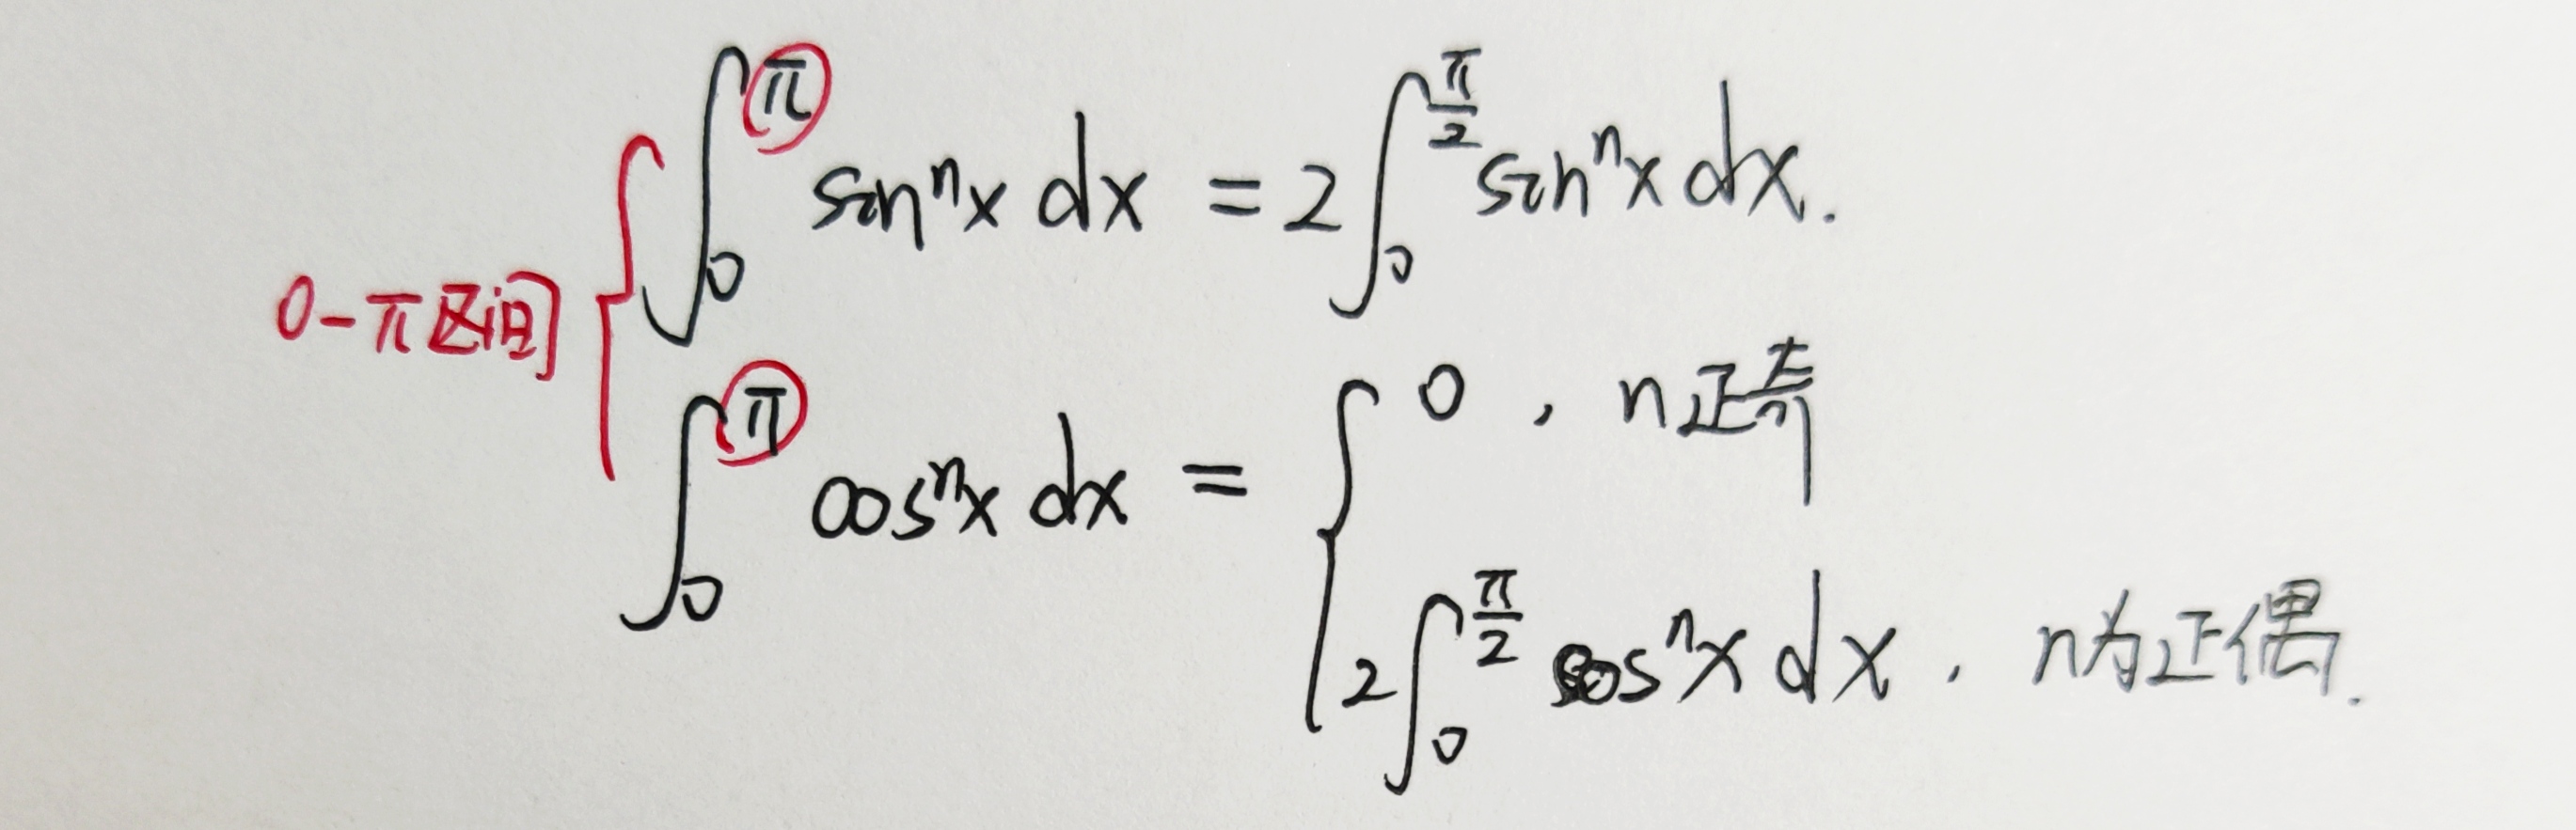 ∫₀^π sinⁿx dx = 2∫₀^{π/2} sinⁿx dx.
0-π区间
∫₀^π cosⁿx dx = { 0 , n正奇
2∫₀^{π/2} cosⁿx dx , n为正偶.